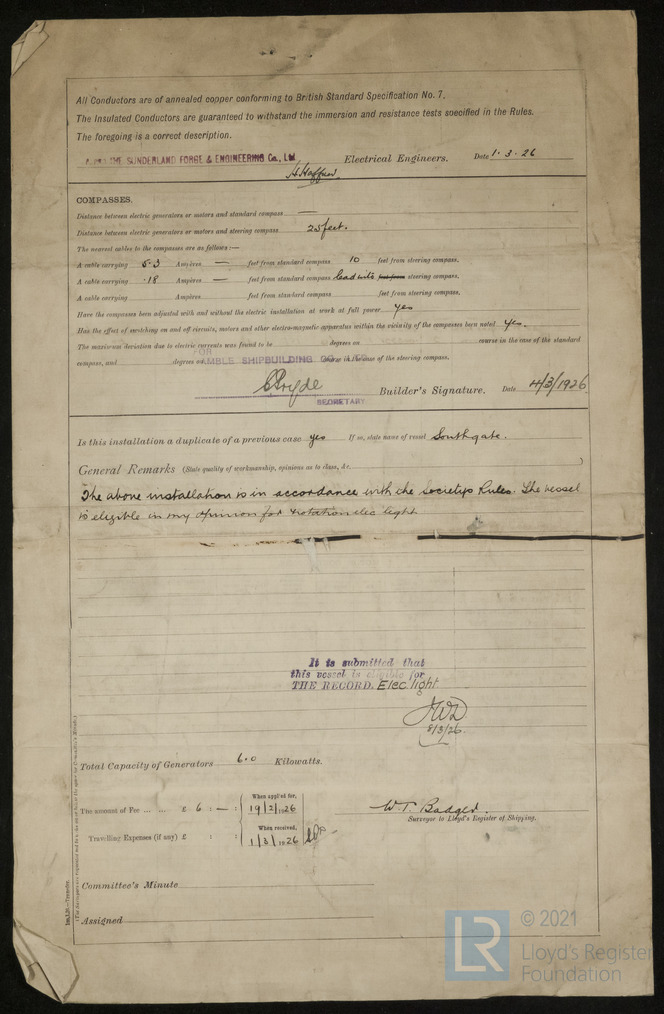 All Conductors are of annealed copper conforming to British Standard Specification No. 7.
The Insulated Conductors are guaranteed to withstand the immersion and resistance tests specified in the Rules.
The foregoing is a correct description.
THE SUNDERLAND FORGE & ENGINEERING Co., Ltd. Electrical Engineers. Date 1·3·26
COMPASSES.
Distance between electric generators or motors and standard compass —
Distance between electric generators or motors and steering compass 25 feet.
The nearest cables to the compasses are as follows:—
A cable carrying 5·3 Ampères — feet from standard compass 10 feet from steering compass.
A cable carrying ·18 Ampères — feet from standard compass lead into feet from steering compass.
A cable carrying Ampères feet from standard compass feet from steering compass.
Have the compasses been adjusted with and without the electric installation at work at full power yes
Has the effect of switching on and off circuits, motors and other electro-magnetic apparatus within the vicinity of the compasses been noted yes.
The maximum deviation due to electric currents was found to be degrees on course in the case of the standard
FOR
compass, and degrees on course in the case of the steering compass.
AMBLE SHIPBUILDING CO.
Builder's Signature. Date 4/3/1926
SECRETARY
Is this installation a duplicate of a previous case yes If so, state name of vessel Southgate.
General Remarks (State quality of workmanship, opinions as to class, &c. )
The above installation is in accordance with the Societys Rules. The vessel
is eligible in my opinion for notation elec light
It is submitted that
this vessel is eligible for
THE RECORD. Elec light
8/3/26.
Total Capacity of Generators 6.0 Kilowatts.
The amount of Fee ... ... £ 6 : — : When applied for, 19/2/1926
W. T. Badger.
Surveyor to Lloyd's Register of Shipping.
Travelling Expenses (if any) £ : : When received, 1/3/1926
Committee's Minute
Assigned
LR © 2021
Lloyd's Register
Foundation